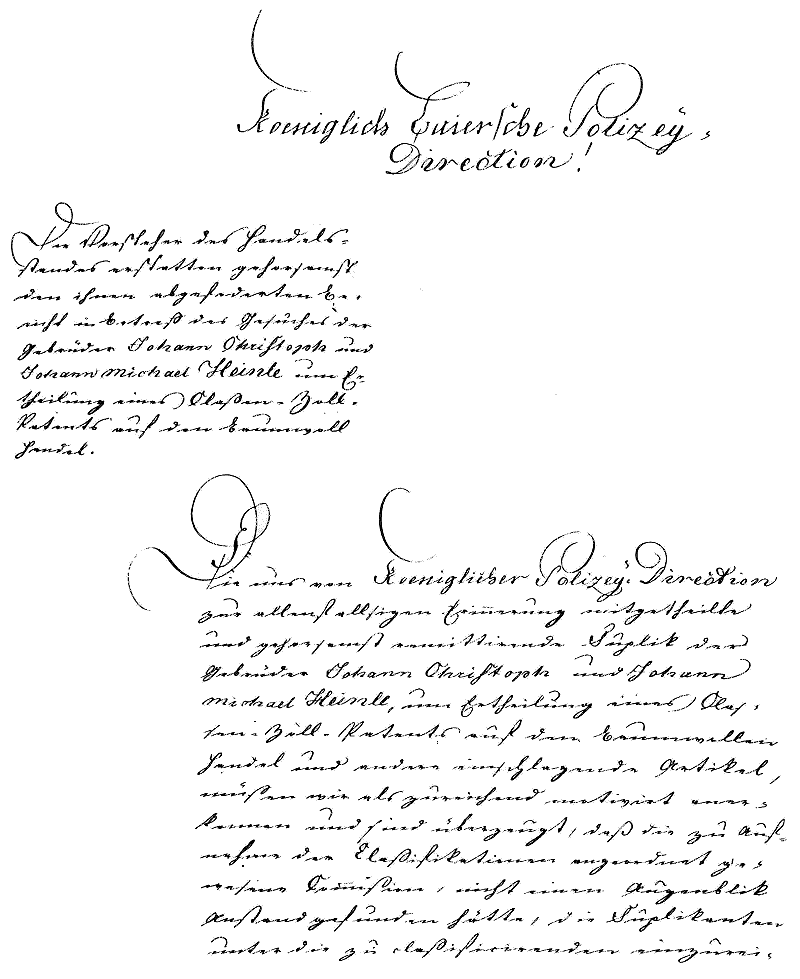 Koeniglich Baiersche Polizeÿ-
Direction!
Die Vorsteher des Handels-
standes erstatten gehorsamst
den ihnen abgefoderten Be-
richt in Betreff des Gesuches der
Gebrüder Johann Christoph und
Johann Michael Heinle um Er-
theilung eines Classen-Zoll-
Patents auf den Baumwoll
Handel.
Die uns von Koeniglicher Polizeÿ-Direction
zur allenfallsigen Erinnerung mitgetheilte
und gehorsamst remittirende Suplik der
Gebrüder Johann Christoph und Johann
Michael Heinle, um Ertheilung eines Clas-
sen-Zoll-Patents auf den Baumwollen
Handel und andere einschlagende Artikel,
müßen wir als zureichend motivirt aner-
kennen und sind überzeugt, daß die zu Auf-
nahme der Classifikationen angeordnet ge-
wesene Commission, nicht einen Augenblik
Anstand gefunden hätte, die Suplikanten
unter die zu classificirenden einzurei-